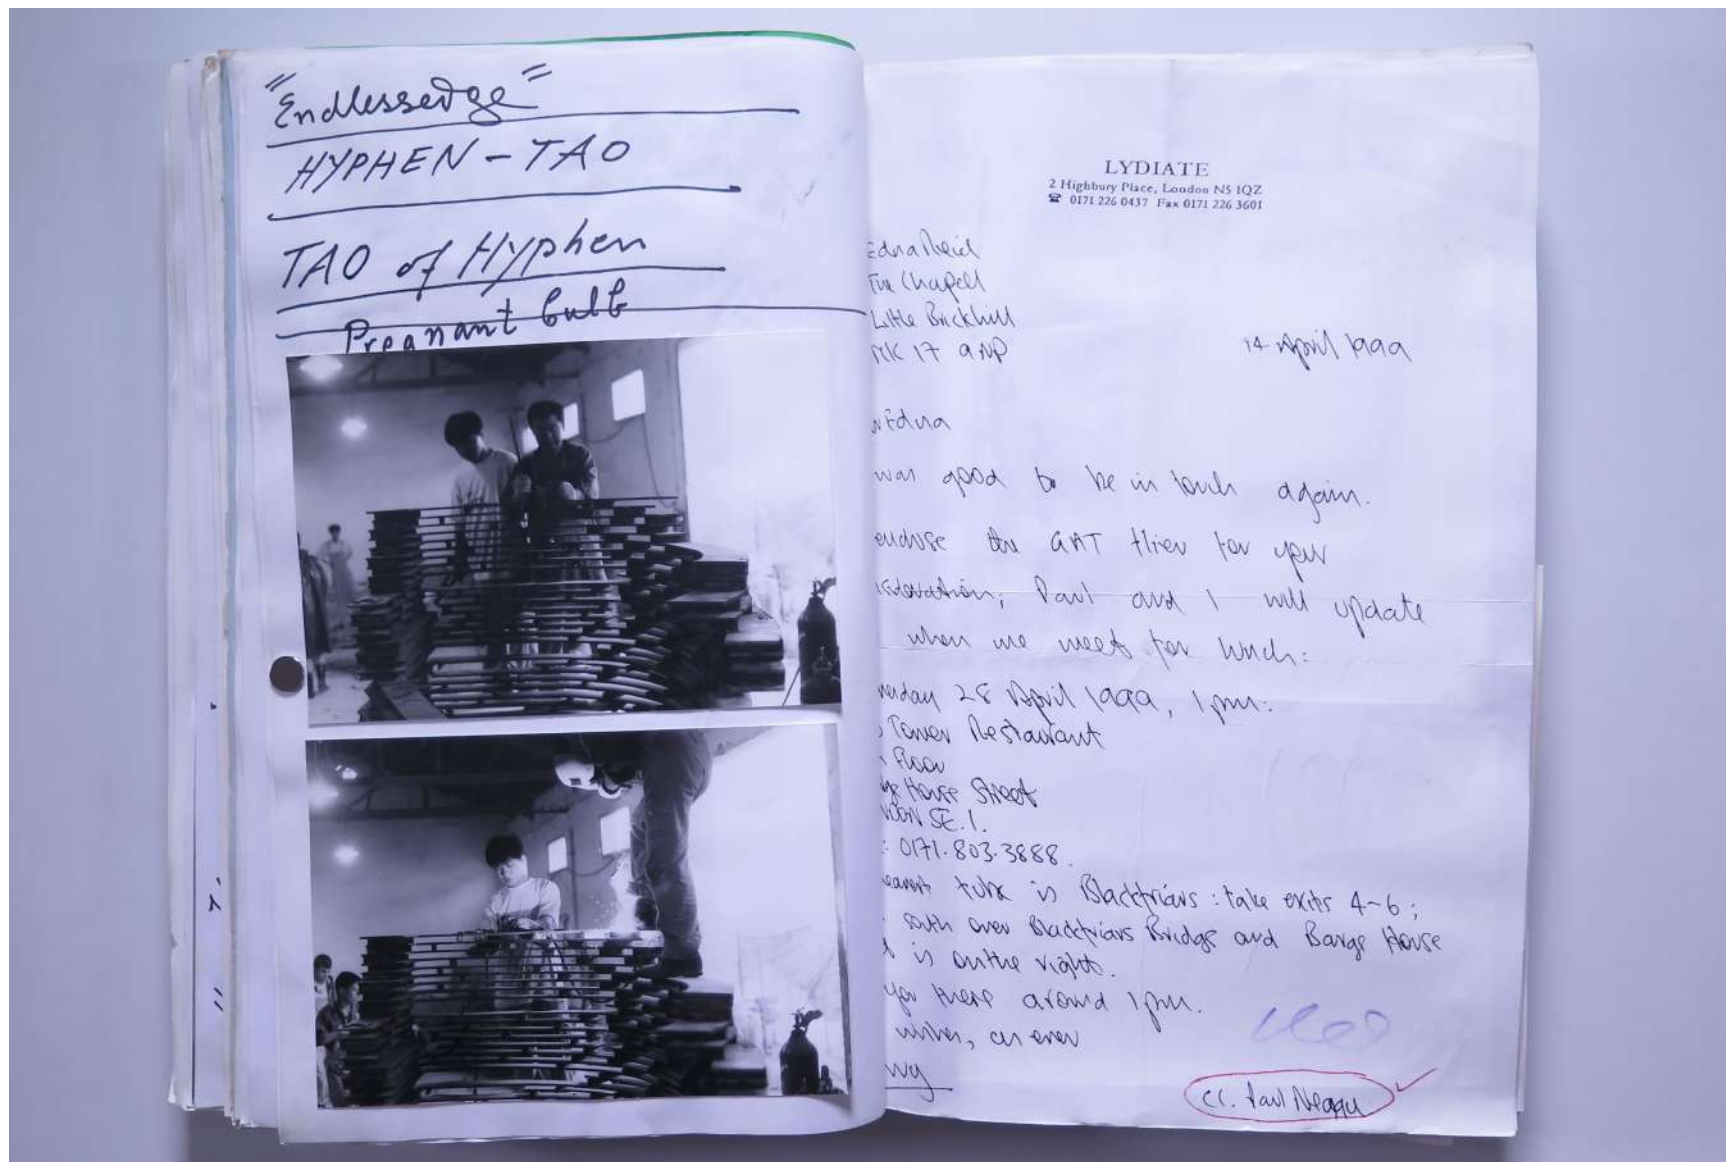 "Endlessedge"
HYPHEN - TAO
TAO of Hyphen
Pregnant bulb
LYDIATE
2 Highbury Place, London N5 1QZ
☎ 0171 226 0437 Fax 0171 226 3601
Edna Reid
The Chapel
Little Brickhill
MK 17 9NP
14 April 1999
Edna
was good to be in touch again.
enclose the GAT flier for your
Paul and I will update
when we meet for lunch:
28 April 1999, 1pm:
Tower Restaurant
Floor
House Street
SE.1.
: 0171.803.3888.
tube is Blackfriars : take exits 4-6 ;
south over Blackfriars Bridge and Barge House
is on the right.
you there around 1pm.
wishes, as ever
cc. Paul Neagu